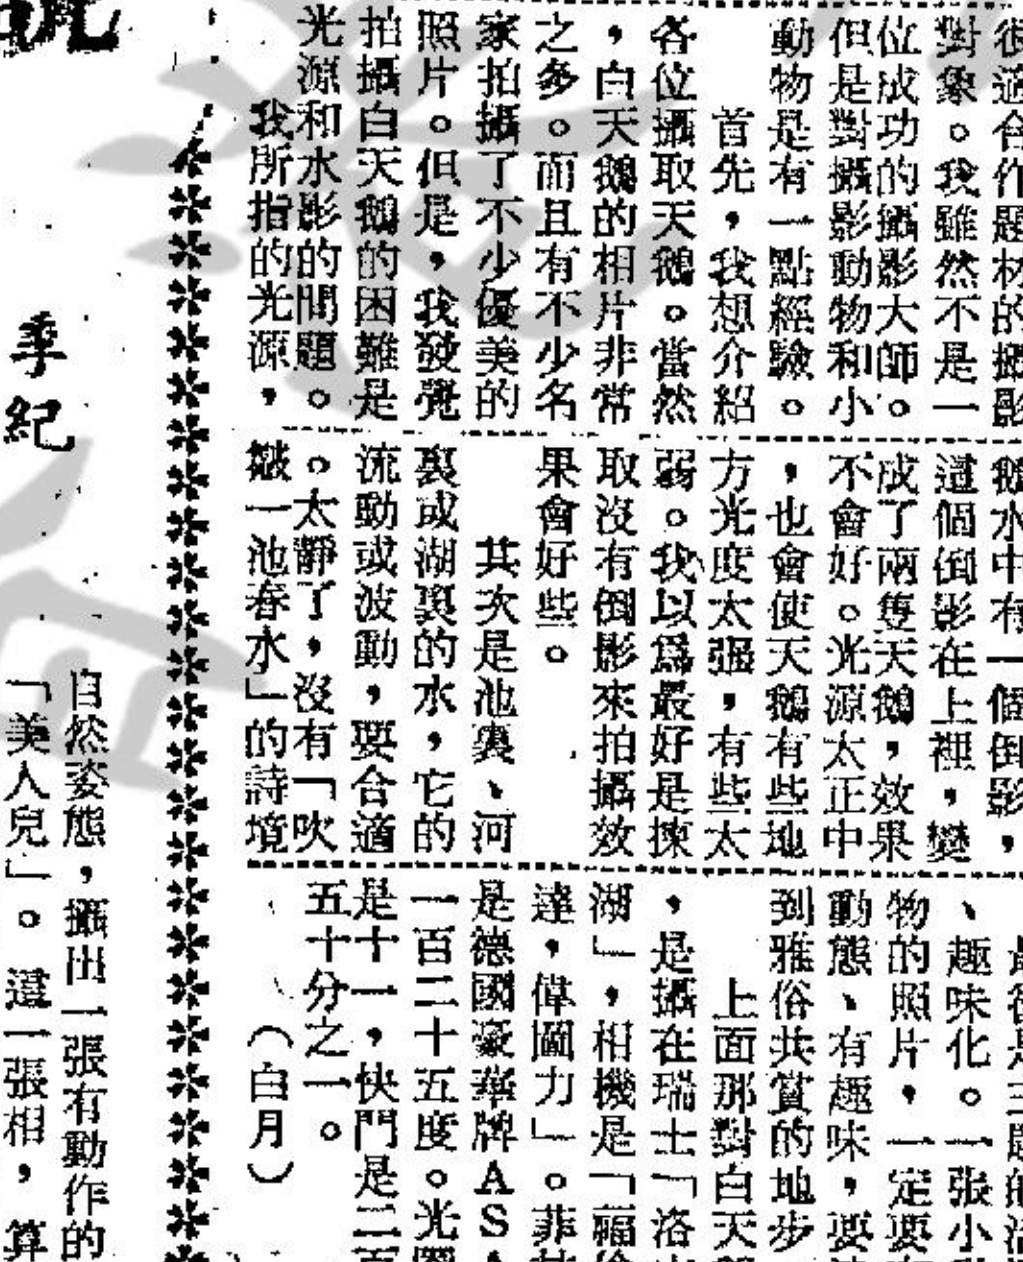 很適合作題材的攝影
對象。我雖然不是一
位成功的攝影大師。
但是對攝影動物和小
動物是有一點經驗。
首先,我想介紹
各位攝取天鵝。當然
,白天鵝的相片非常
之多。而且有不少名
家拍攝了不少優美的
照片。但是,我發覺
拍攝白天鵝的困難是
光源和水影的問題。
我所指的光源,
鵝水中有一個倒影,
這個倒影在上裡,變
成了兩隻天鵝,效果
不會好。光源太正中
,也會使天鵝有些地
方光度太强,有些太
弱。我以爲最好是揀
取沒有倒影來拍攝效
果會好些。
其次是池裏、河
裏或湖裏的水,它的
流動或波動,要合適
。太靜了,沒有「吹
皺一池春水」的詩境
趣味化。一張小
物的照片,一定要
動態、有趣味,要
到雅俗共賞的地步
上面那對白天
,是攝在瑞士「洛
湖」,相機是「福倫
達,偉圖力」。菲
是德國豪華牌AS
一百二十五度。光圈
是十一,快門是二百
五十分之一。
(白月)
季紀
自然姿態,攝出一張有動作的
「美人兒」。這一張相,算